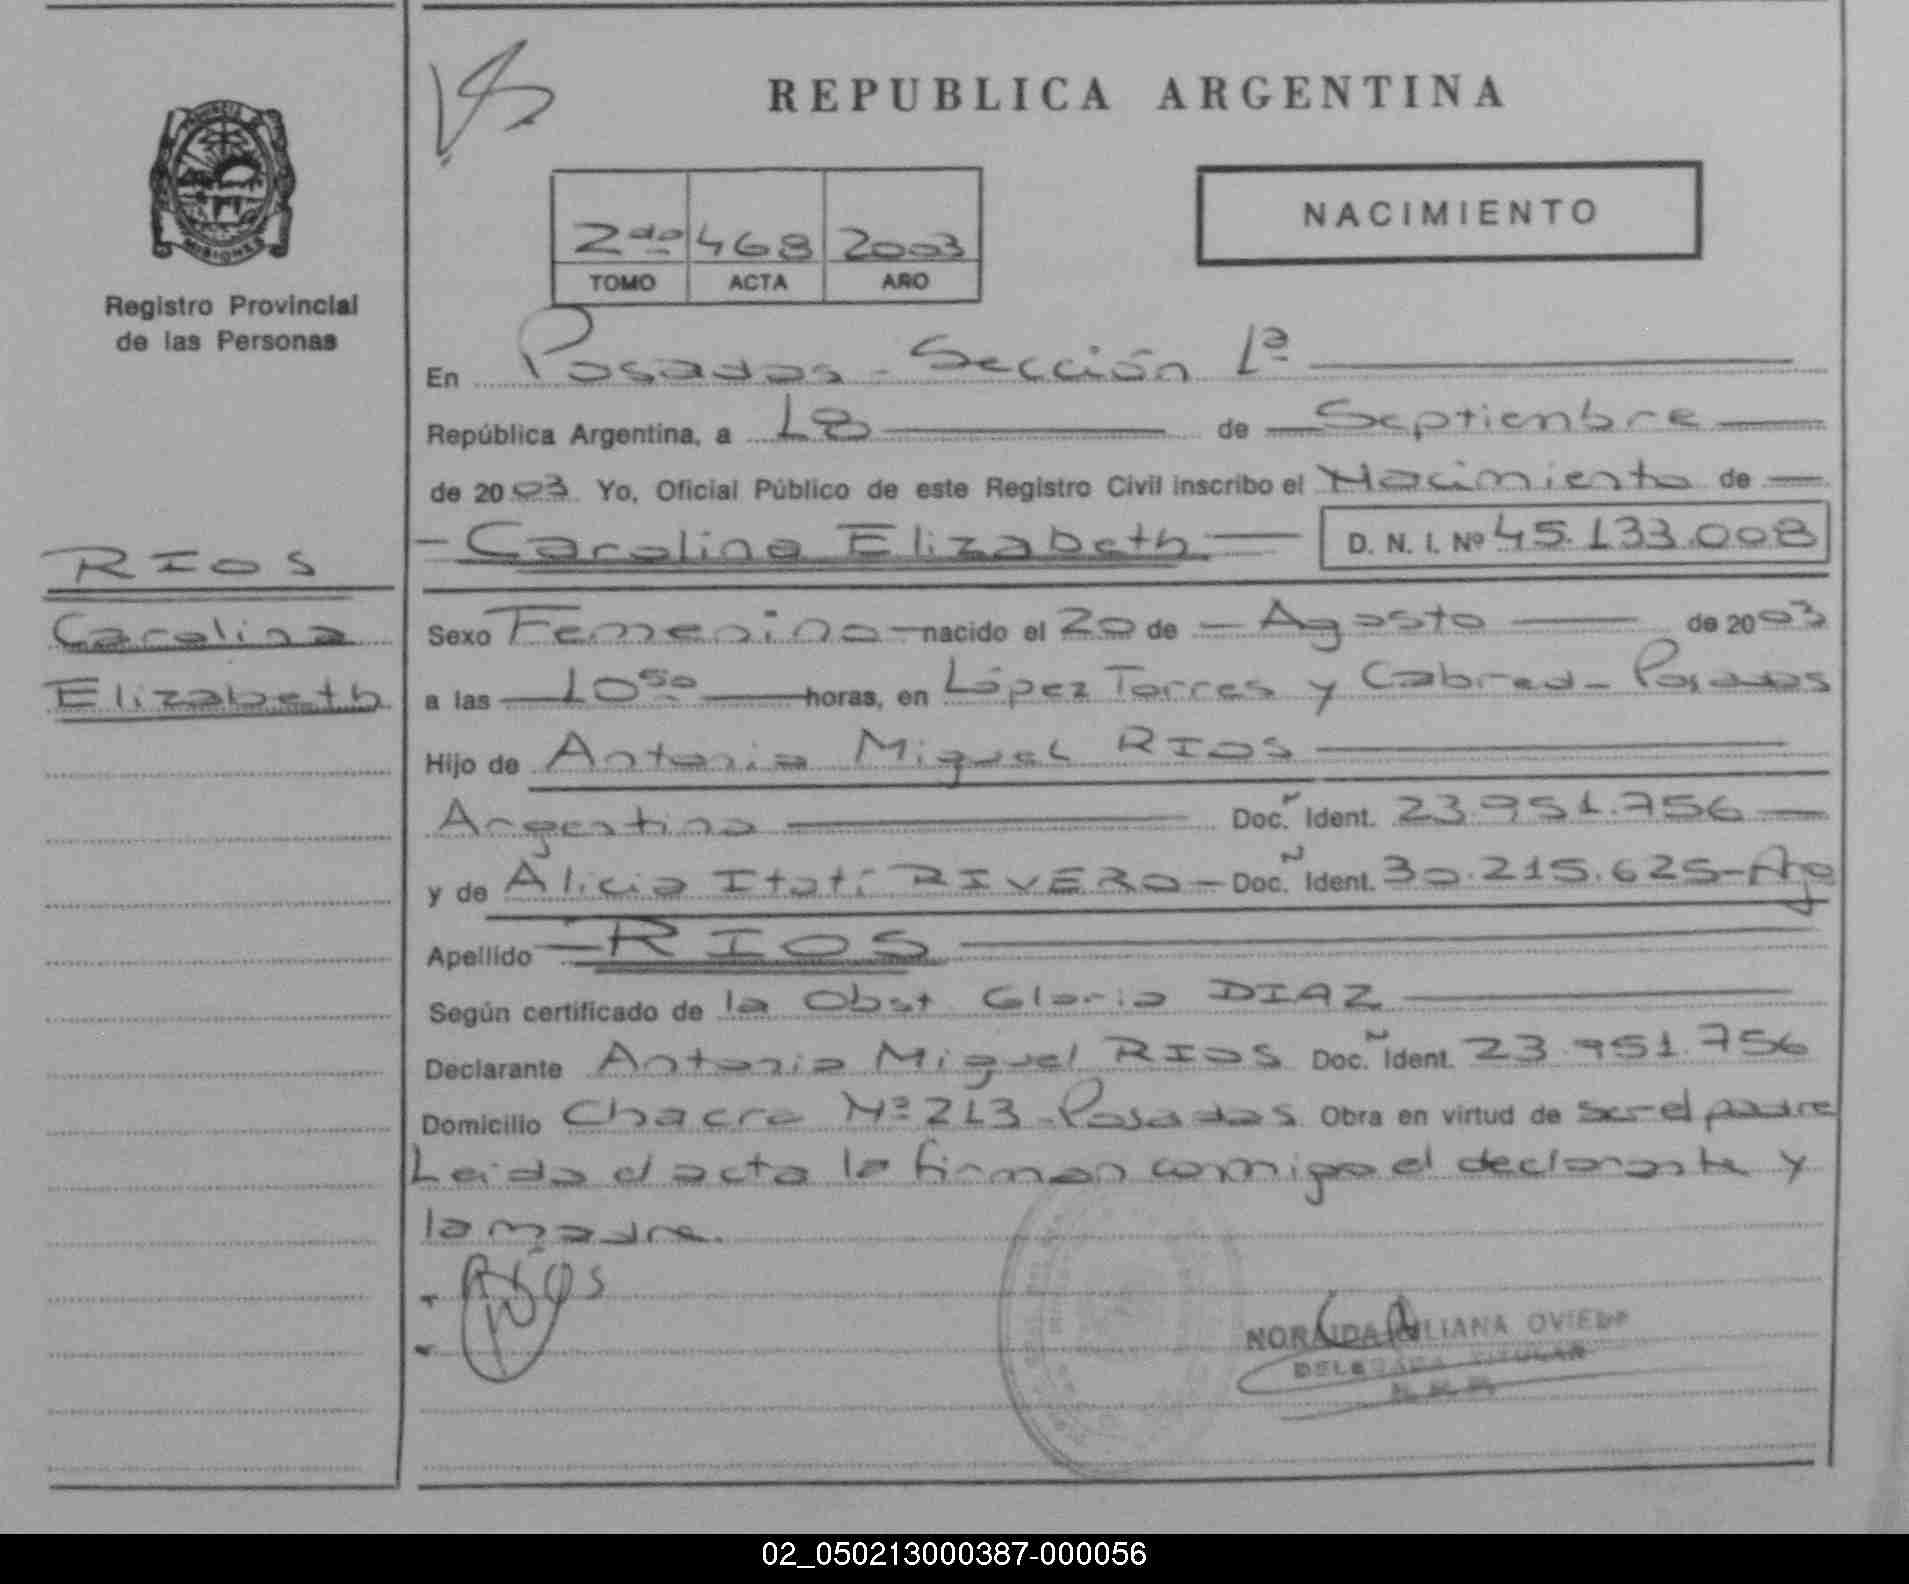 REPUBLICA ARGENTINA
PROVINCIA DE
MISIONES
Registro Provincial
de las Personas
NACIMIENTO
2do 468 2003
TOMO ACTA AÑO
En Posadas - Sección 1ª
República Argentina, a 18 de Septiembre
de 2003 Yo, Oficial Público de este Registro Civil inscribo el Nacimiento de
Carolina Elizabeth D. N. I. Nº 45.133.008
RIOS
Carolina
Elizabeth
Sexo Femenino nacido el 20 de Agosto de 2003
a las 10 50 horas, en López Torres y Cabred - Posadas
Hijo de Antonio Miguel RIOS
Argentino Doc. Ident. 23.951.756
y de Alicia Itatí RIVERO - Doc. Ident. 30.215.625 - Arg
Apellido RIOS
Según certificado de la Obst Gloria DIAZ
Declarante Antonio Miguel RIOS Doc. Ident. 23.951.756
Domicilio Chacra Nº 213 - Posadas Obra en virtud de ser el padre
Leida el acta la firman conmigo el declarante y
la madre.
Rios
NORAIDA LILIANA OVIEDO
DELEGADA TITULAR
02_050213000387-000056